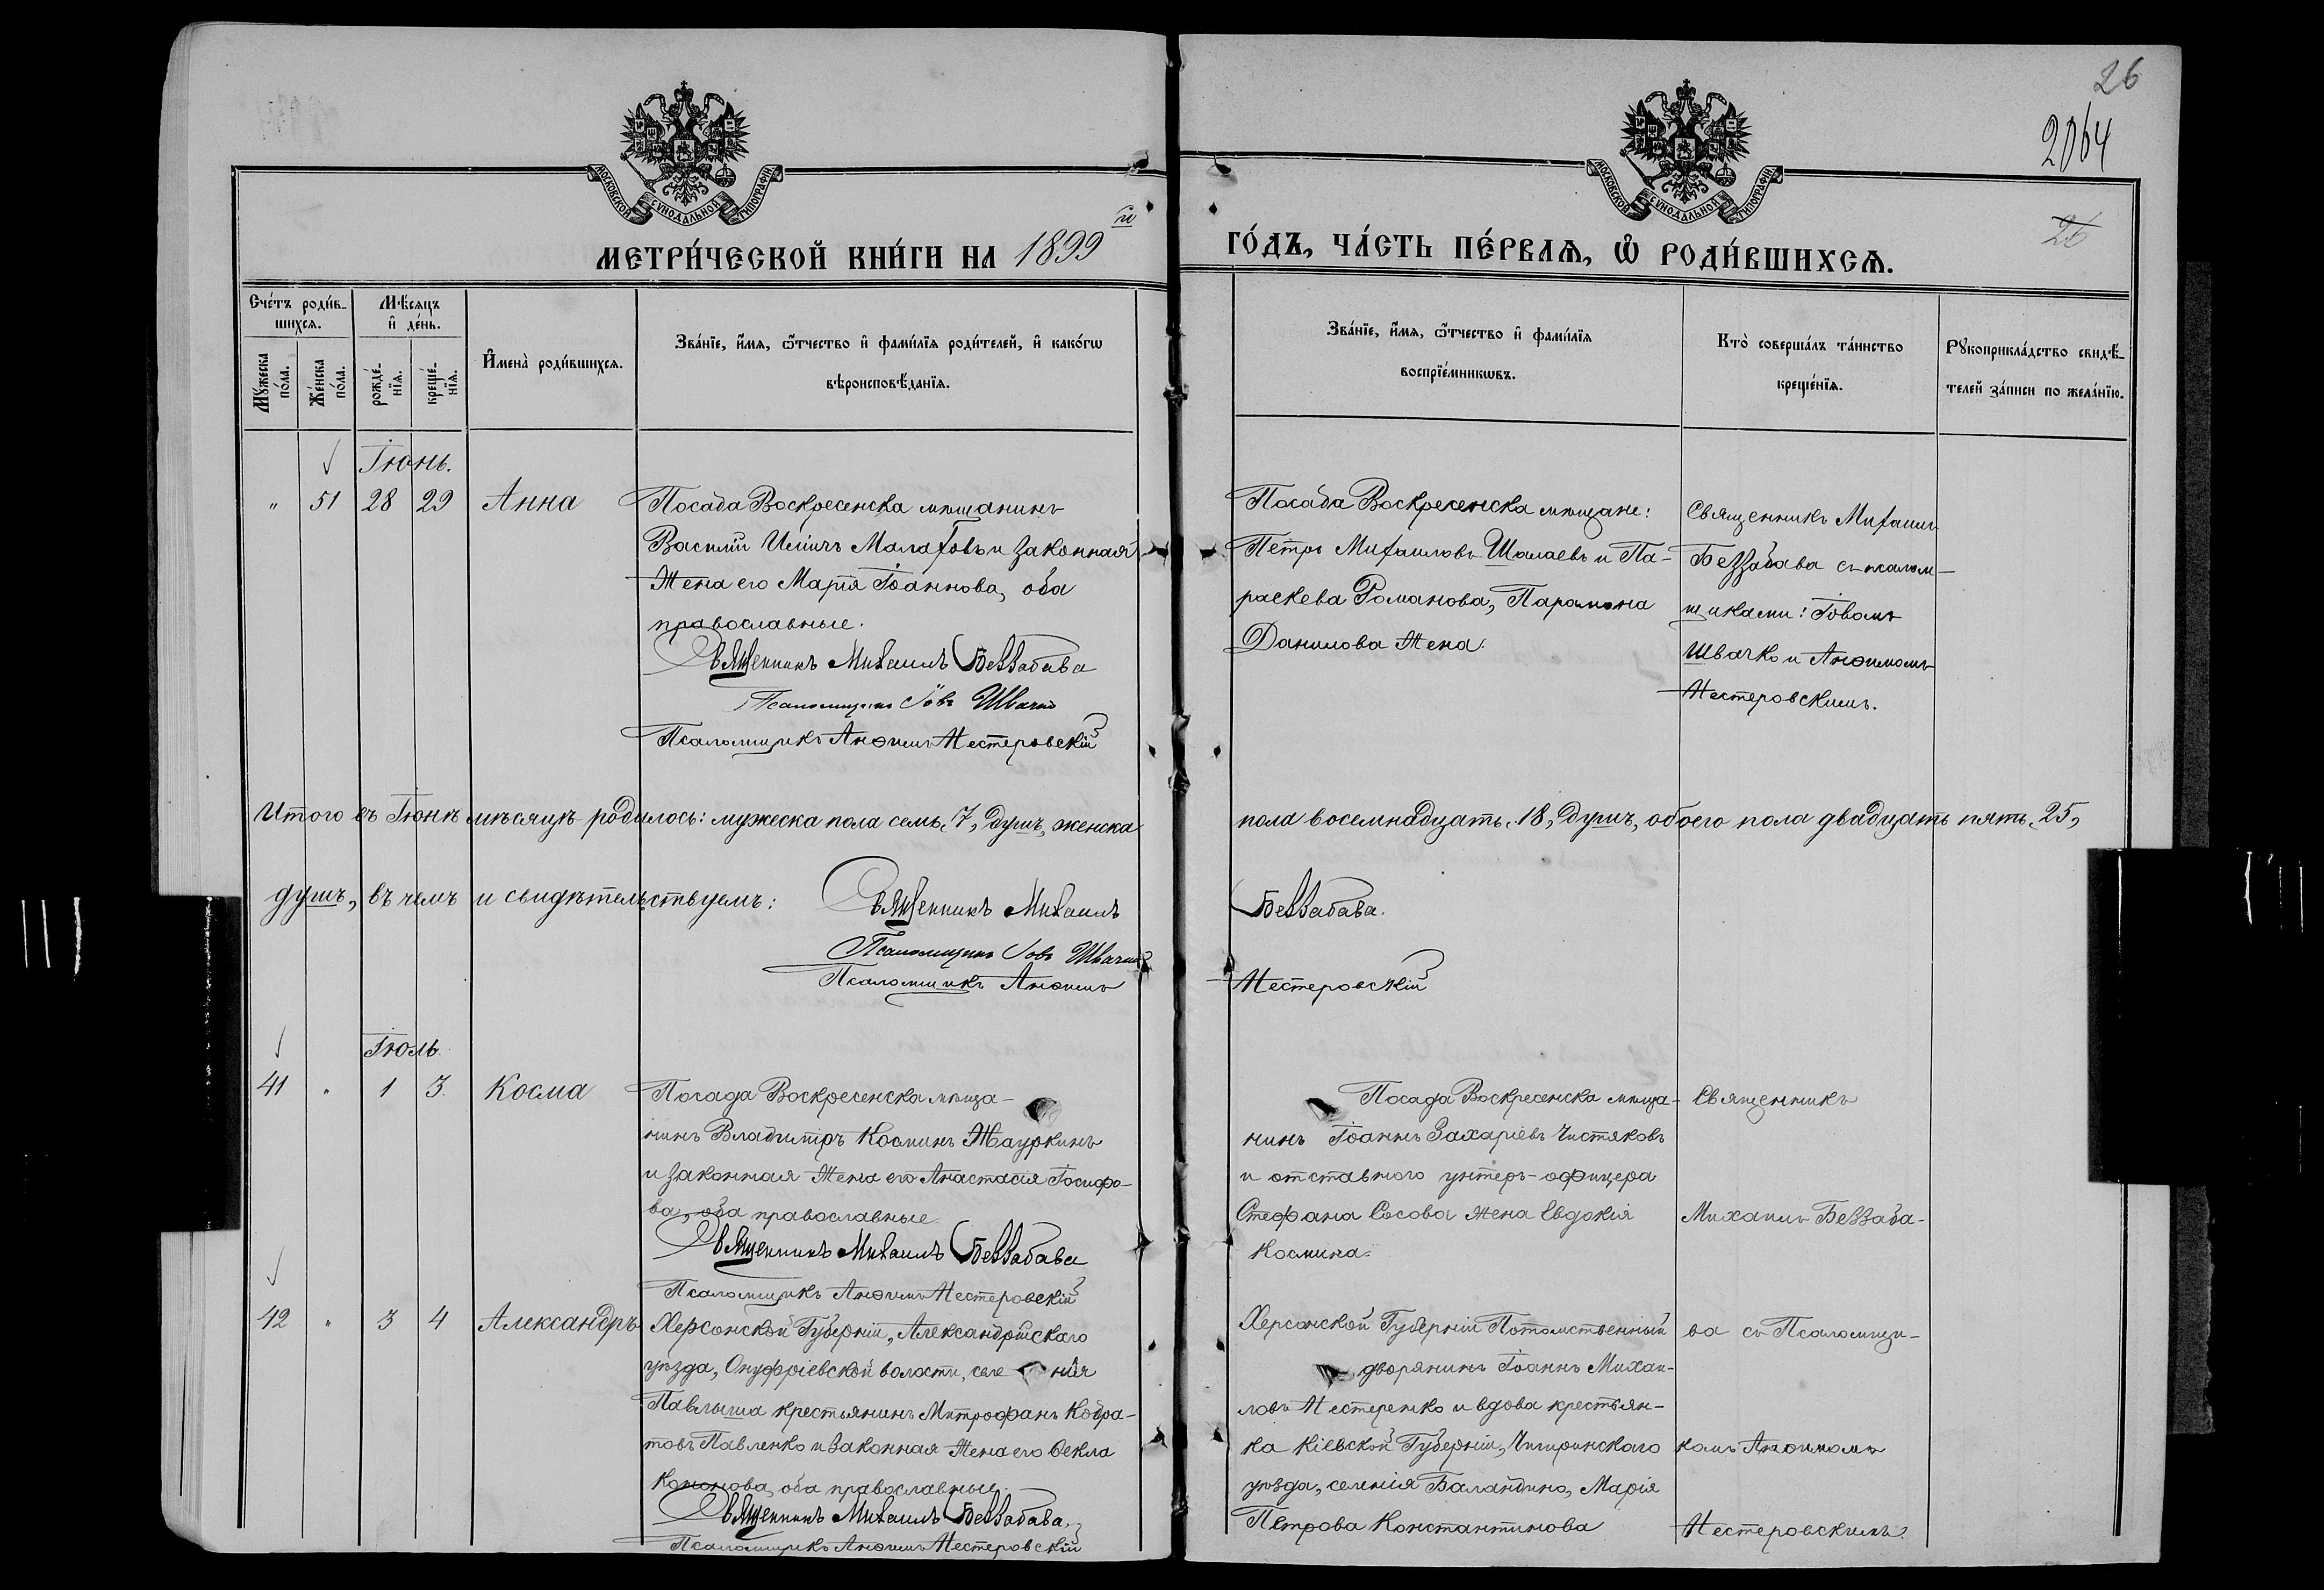 26
2064
26
МОСКОВСКОЙ СѴНОДАЛЬНОЙ ТИПОГРАФІИ
МОСКОВСКОЙ СѴНОДАЛЬНОЙ ТИПОГРАФІИ
МЕТРИ́ЧЕСКОЙ КНИ́ГИ НА 1899 й
ГО́ДЪ, ЧА́СТЬ ПЕ́РВАѦ, Ѡ҆ РОДИ́ВШИХСѦ.
Сче́тъ роди́в-
шихсѧ.
Мꙋ́жеска
по́ла.
Же́нска
по́ла.
Мѣ́сѧцъ
и҆ де́нь.
рожде́-
нїѧ.
креще́-
нїѧ.
И҆мена̀ роди́вшихсѧ.
Зва́нїе, и҆́мѧ, ѻ҆́тчество и҆ фами́лїѧ роди́телей, и҆ како́гѡ
вѣроисповѣ́данїѧ.
Зва́нїе, и҆́мѧ, ѻ҆́тчество и҆ фами́лїѧ
воспрїе́мникѡвъ.
Кто̀ соверша́лъ та́инство
креще́нїѧ.
Рꙋкоприкла́дство свидѣ́-
телей за́писи по жела́нїю.
Іюнь.
" 51 28 29 Анна
Посада Воскресенска мѣщанинъ
Василій Иліинъ Малаховъ и законная
жена его Марія Іоаннова, оба
православные.
Священникъ Михаилъ Беззабава
Псаломщикъ Іовъ Швачко
Псаломщикъ Анѳимъ Нестеровскій
Посада Воскресенска мѣщане:
Петръ Михаиловъ Шалаевъ и Па-
раскева Романова, Парамона
Данилова жена.
Священникъ Михаилъ
Беззабава съ псалом-
щиками: Іовомъ
Швачко и Анѳимомъ
Нестеровскимъ.
Итого въ Іюнѣ мѣсяцѣ родилось: мужеска пола семь, 7, душъ, женска
пола восемнадцать, 18, душъ, обоего пола двадцать пять, 25,
душъ, въ чемъ и свидѣтельствуемъ:
Священникъ Михаилъ Беззабава.
Псаломщикъ Іовъ Швачко
Псаломщикъ Анѳимъ Нестеровскій
Іюль.
41 " 1 3 Косма
Посада Воскресенска мѣща-
нинъ Владиміръ Косминъ Жауркинъ
и законная жена его Анастасія Іосифо-
ва, оба православные.
Священникъ Михаилъ Беззабава
Псаломщикъ Анѳимъ Нестеровскій
Посада Воскресенска мѣща-
нинъ Іоаннъ Захаріевъ Чистяковъ
и отставного унтеръ-офицера
Стефана Сысова жена Евдокія
Космина.
Священникъ
Михаилъ Беззаба-
42 " 3 4 Александръ
Херсонской Губерніи, Александрійскаго
уѣзда, Онуфріевской волости, селенія
Павлыша крестьянинъ Митрофанъ Кодра-
товъ Павленко и законная жена его Ѳекла
Кононова, оба православные.
Священникъ Михаилъ Беззабава.
Псаломщикъ Анѳимъ Нестеровскій
Херсонской Губерніи Потомственный
дворянинъ Іоаннъ Михаи-
ловъ Нестеренко и вдова крестьян-
ка Кіевской Губерніи, Чигиринскаго
уѣзда, селенія Баландино, Марія
Петрова Константинова
ва съ Псаломщи-
комъ Анѳимомъ
Нестеровскимъ.